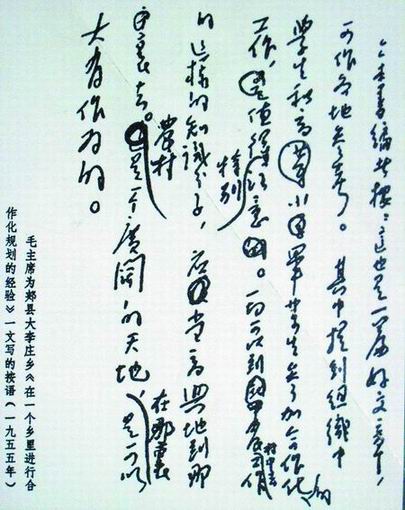 本書編者按：這也是一篇好文章，
可作各地参考。其中提到組織中
學生和高小畢業生参加合作化的
工作，值得特别注意。一切可以到農村中去工作
的這樣的知識分子，应當高興地到那
里去。農村是一个廣闊的天地，在那裏是可以
大有作为的。
毛主席为郏县大李庄乡《在一个乡里进行合
作化规划的经验》一文写的按语（一九五五年）